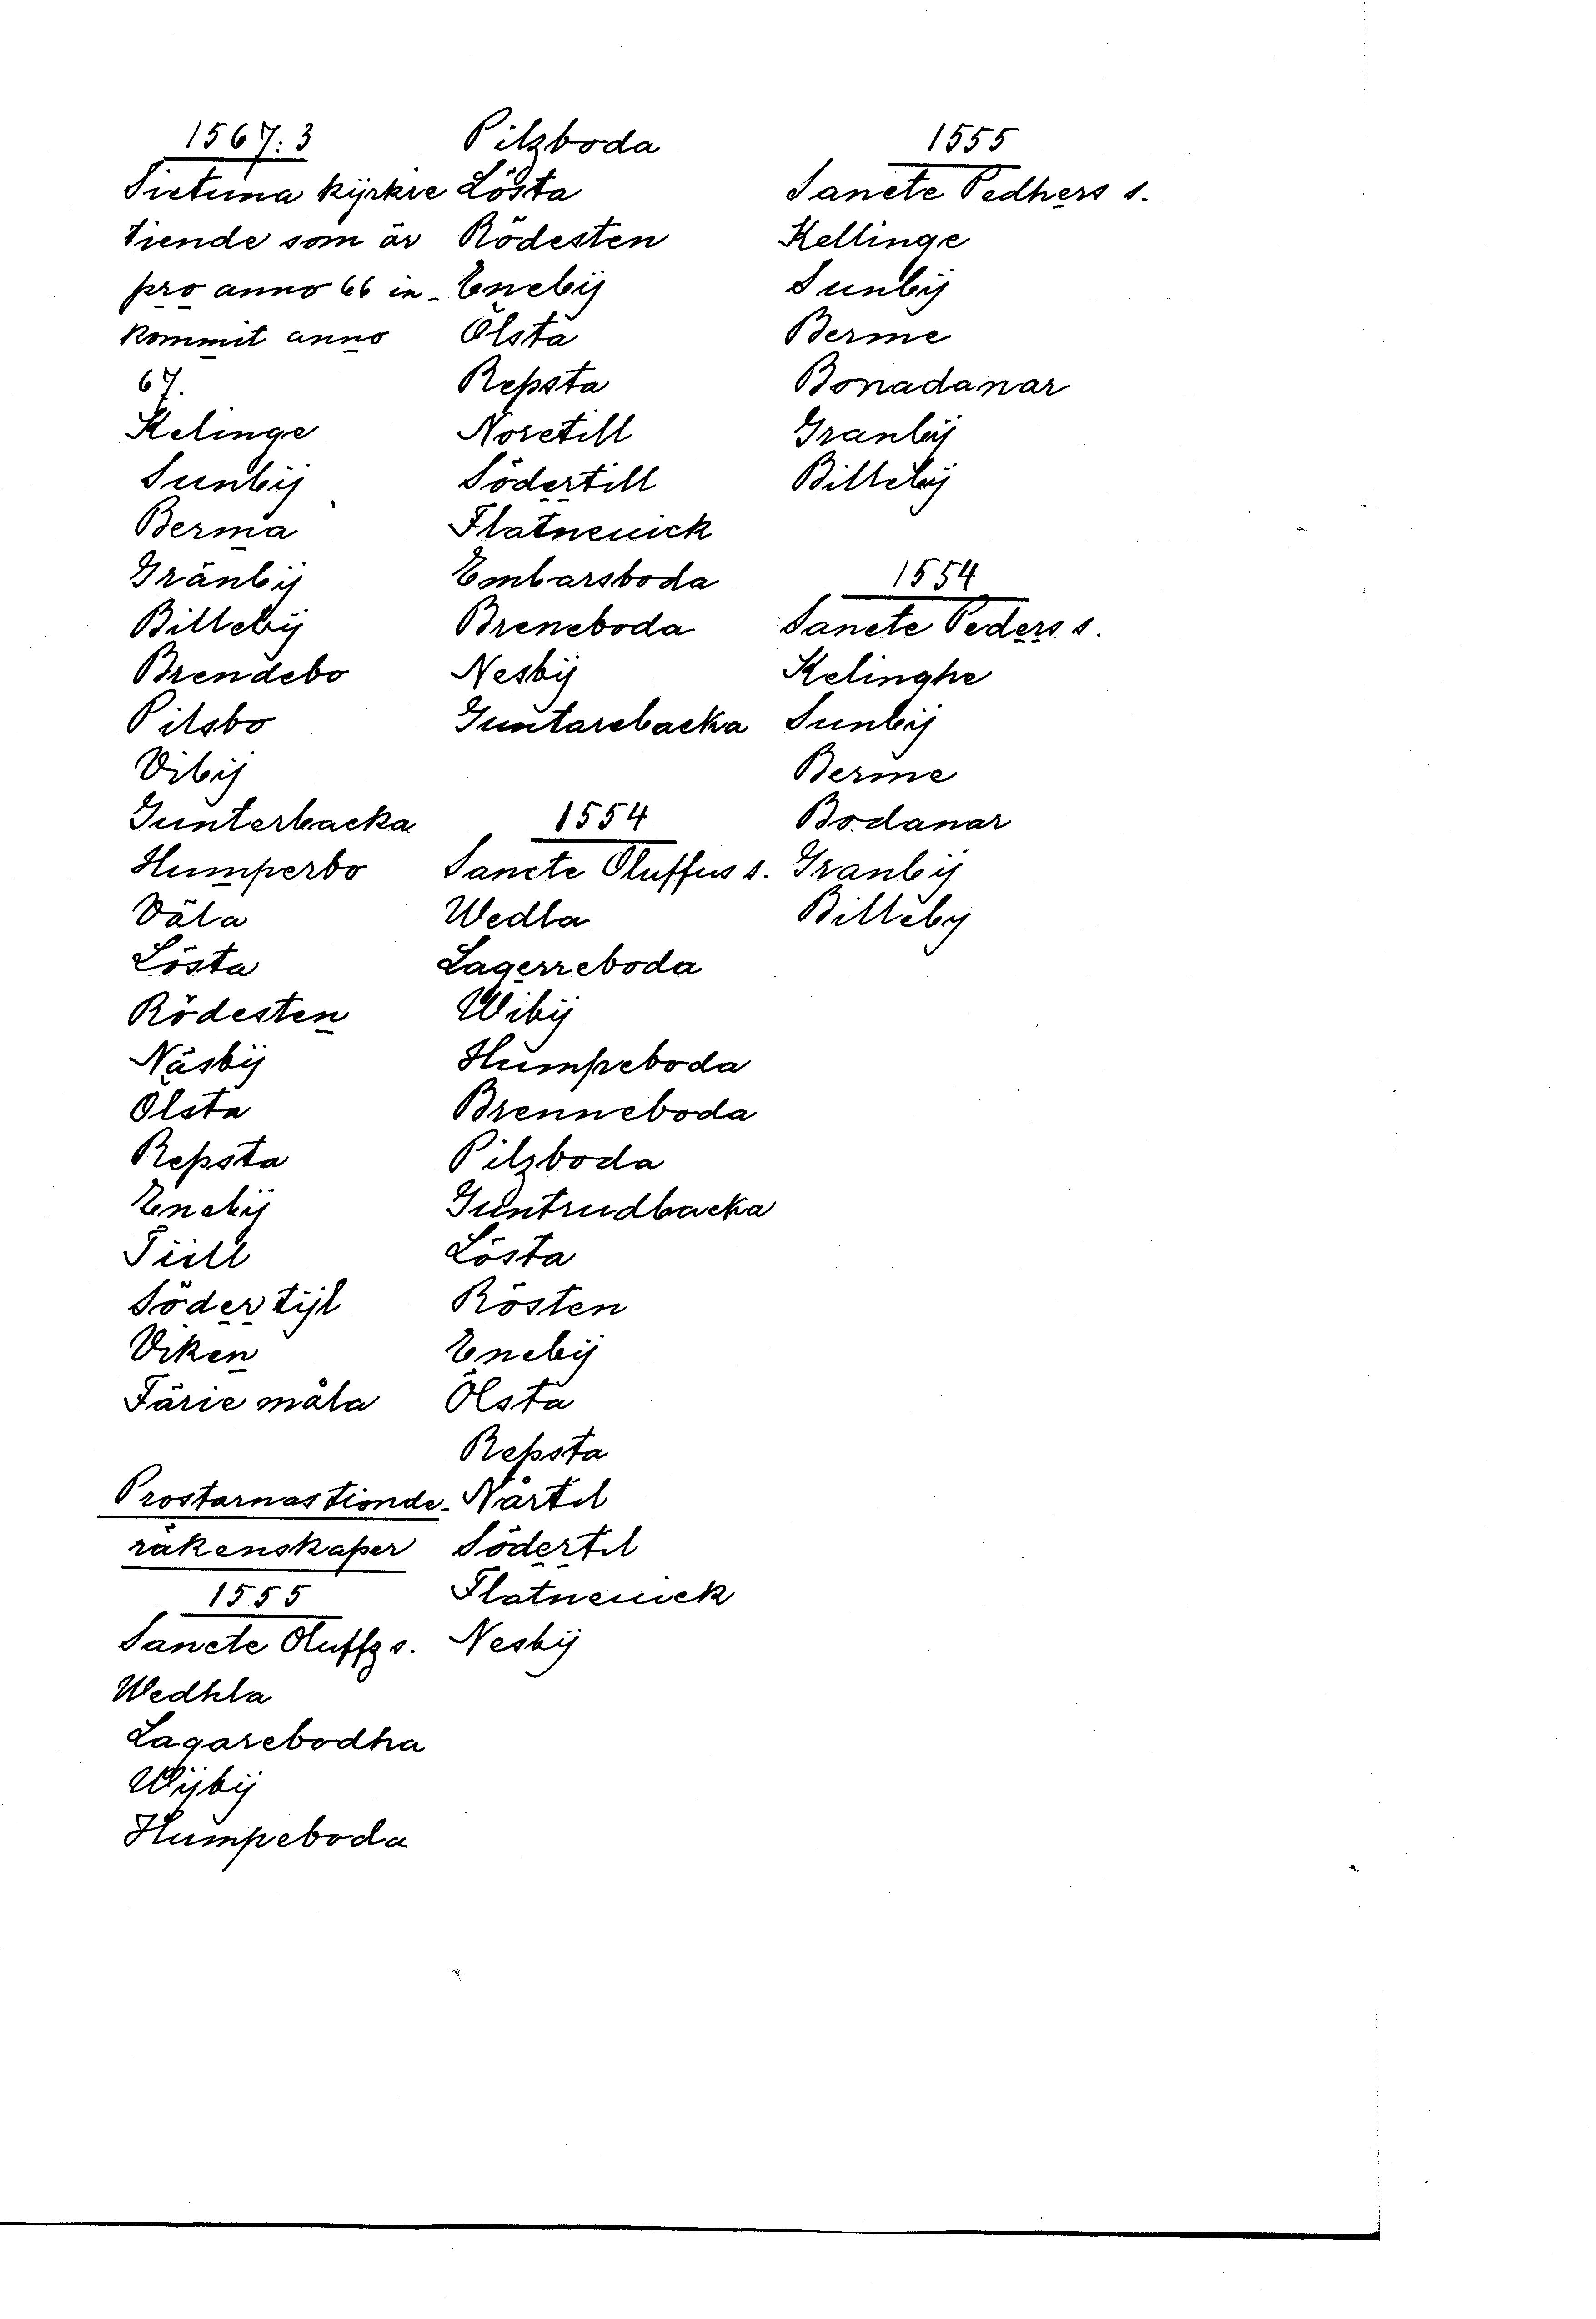 1567:3
Sictuna kijrkie
tiende som är
pro anno 66 in-
kommit anno
67.
Kelinge
Sunbij
Berma
Gränbij
Billebij
Brendebo
Pilsbo
Vibij
Gunterbacka
Humperbo
Våla
Lösta
Rödesten
Näsbij
Ölsta
Repsta
Enebij
Tiill
Södertijl
Viken
Färie måla
Prostarnas tionde-
räkenskaper
1555
Sancte Oluffz s.
Wedhla
Lagarebodha
Wijbij
Humpeboda
Pilzboda
Lösta
Rödesten
Enebij
Ölsta
Repsta
Noretill
Södertill
Flatneuick
Embarsboda
Breneboda
Nesbij
Guntarebacka
1554
Sancte Oluffus s.
Wedla
Lagerreboda
Wibij
Humpeboda
Brenneboda
Pilzboda
Guntrudbacka
Lösta
Rösten
Enebij
Ölsta
Repsta
Nårtil
Södertil
Flatneuick
Nesbij
1555
Sancte Pedhers s.
Kellinge
Sunbij
Berme
Bonadanar
Granbij
Billebij
1554
Sancte Peders s.
Kelinghe
Sunbij
Berme
Bodanar
Granbij
Billeby